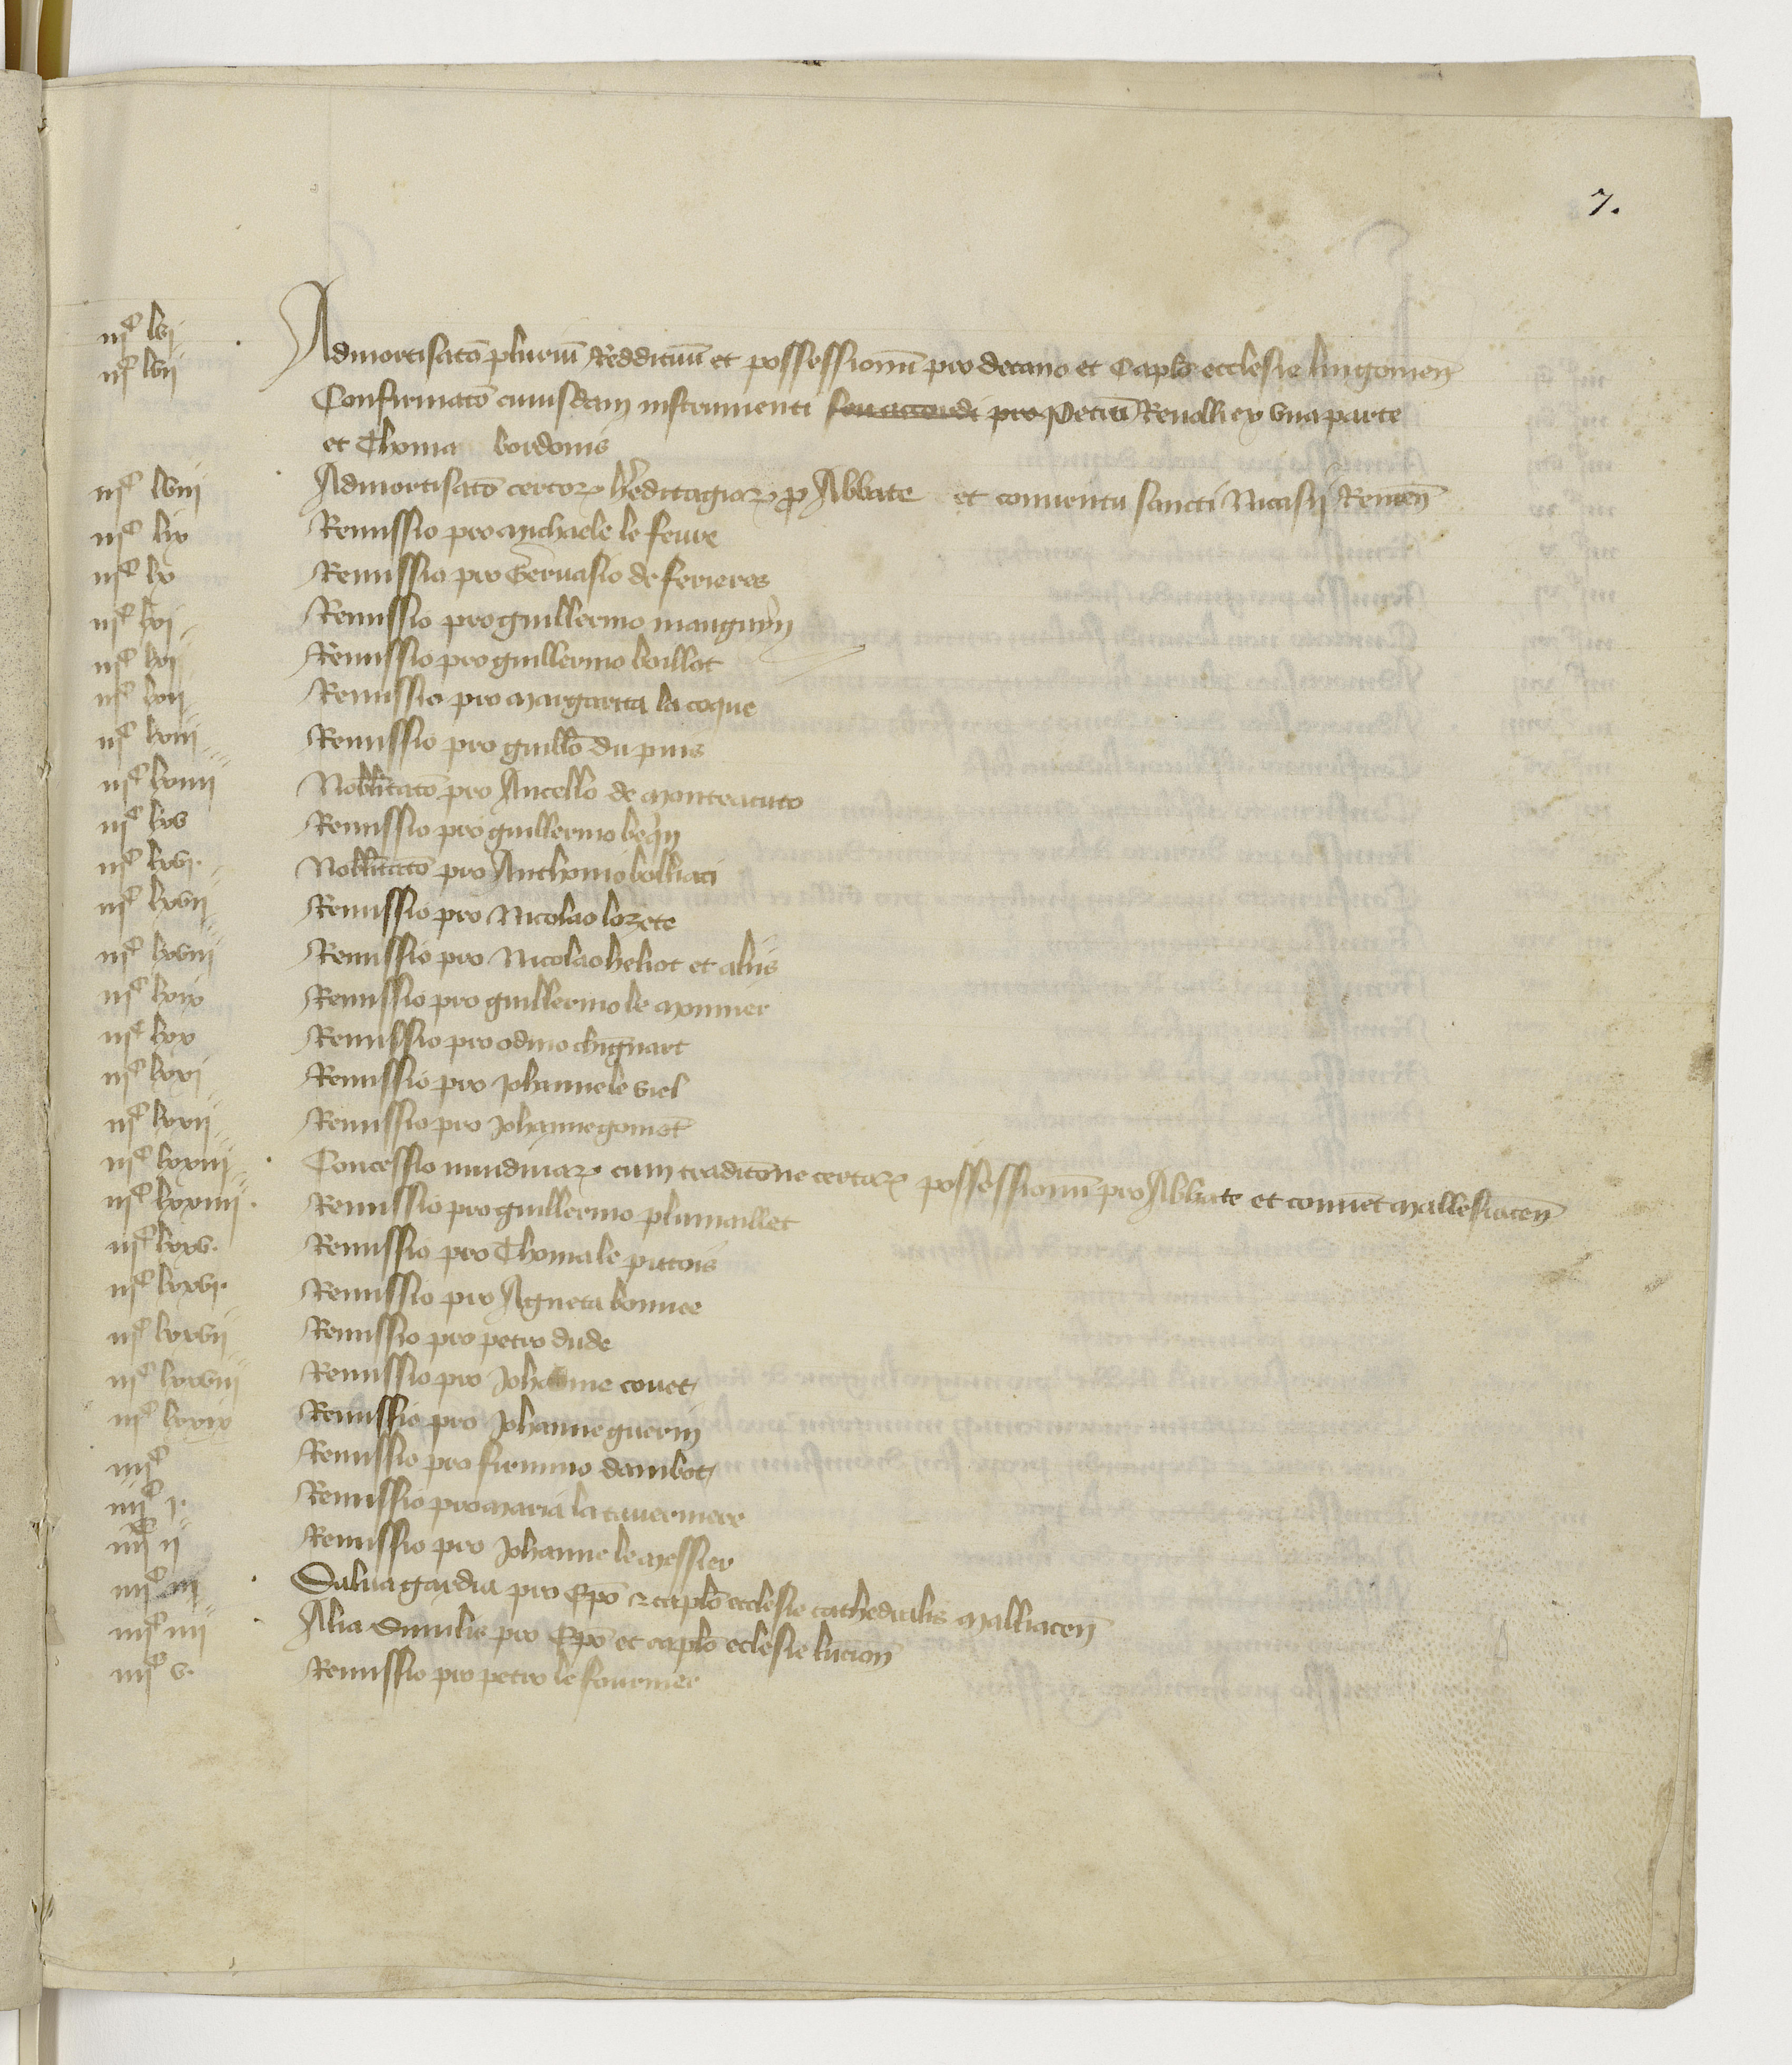 7.
iiiᶜ lvi Admortisatõ pluriũ Reddituũ et possessionũ pro decano et Caplo ecclesie lingonen̄
iiiᶜ lvii Confirmatõ cuiusdam instrumenti seu accordi pro Petrũ Renolli ex vna parte
et Thoma bordonis
iiiᶜ lviii Admortisatõ certoꝝ h̃editagioꝝ ꝓ Abbate et conuentu sancti Nicasij Remen̄
iiiᶜ lix Remissio pro michaele le feure
iiiᶜ lx Remissio pro Geruasio de ferieres
iiiᶜ lxi Remissio pro guillermo mauguyn
iiiᶜ lxi Remissio pro guillermo boillot
iiiᶜ lxii Remissio pro margarita la coque
iiiᶜ lxiii Remissio pro guillõ du puis
iiiᶜ lxiiii Nobl̃itatõ pro Ancello de monteacuto
iiiᶜ lxv Remissio pro guillermo beq̃in
iiiᶜ lxvi. Nobl̃itatõ pro Anthonio bolliaci
iiiᶜ lxvii Remissio pro Nicolao lozete
iiiᶜ lxviii Remissio pro Nicolao heliot et aliis
iiiᶜ lxix Remissio pro guillermo le monnier
iiiᶜ lxx Remissio pro odino chignart
iiiᶜ lxxi Remissio pro Johanne le viel
iiiᶜ lxxii Remissio pro Johanne gomot
iiiᶜ lxxiii Concessio nundinaꝝ cum traditõne certaꝝ possessionũ pro Abbate et conuet mallesiacen̄
iiiᶜ lxxiiii. Remissio pro guillermo plumaillet
iiiᶜ lxxv. Remissio pro Thoma le patois
iiiᶜ lxxvi. Remissio pro Agneta bonnee
iiiᶜ lxxvii Remissio pro petro dude
iiiᶜ lxxviii Remissio pro Johanne couet
iiiᶜ lxxix Remissio pro Johanne guerin
iiiiᶜ Remissio pro firmino dambot
iiiiᶜ i. Remissio pro maria la tauerniere
iiiiᶜ ii Remissio pro Johanne le messier
iiiiᶜ iii Saluagardia pro Ep̃o et caplõ ecclesie cathedralis malliacen̄
iiiiᶜ iiii Alia Similis pro Ep̃o et caplõ ecclesie lucion̄
iiiiᶜ v. Remissio pro petro le fournier